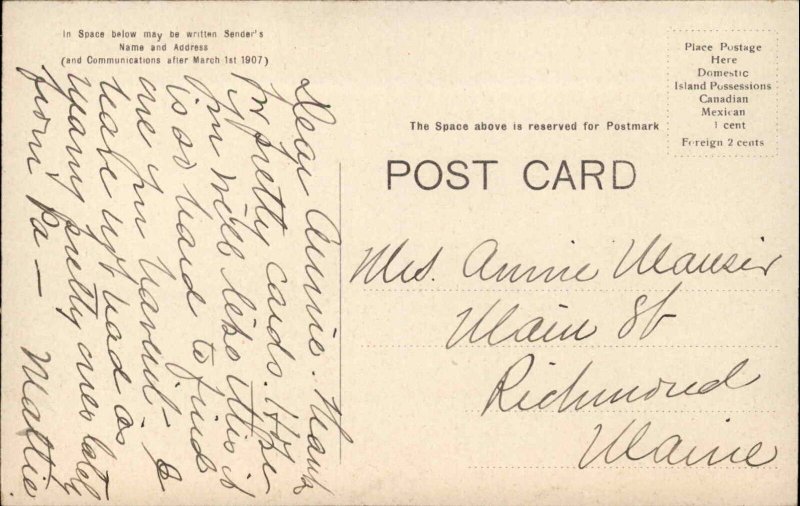 In Space below may be written Sender's
Name and Address
(and Communications after March 1st 1907)
Place Postage
Here
Domestic
Island Possessions
Canadian
Mexican
1 cent
Foreign 2 cents
The Space above is reserved for Postmark
POST CARD
Dear Annie. Thanks
for pretty cards. Hope
you will like this it
is so hard to find
one you havent - I
have not had as
many pretty ones lately
from Pa —
Mattie.
Mrs. Annie
Main St
Richmond
Maine